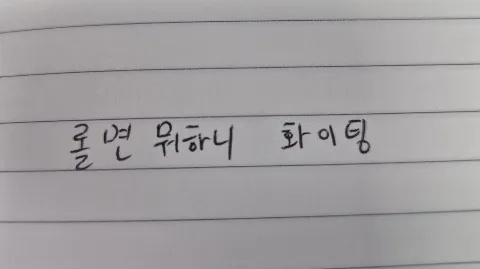 롤면 뭐하니 화이팅